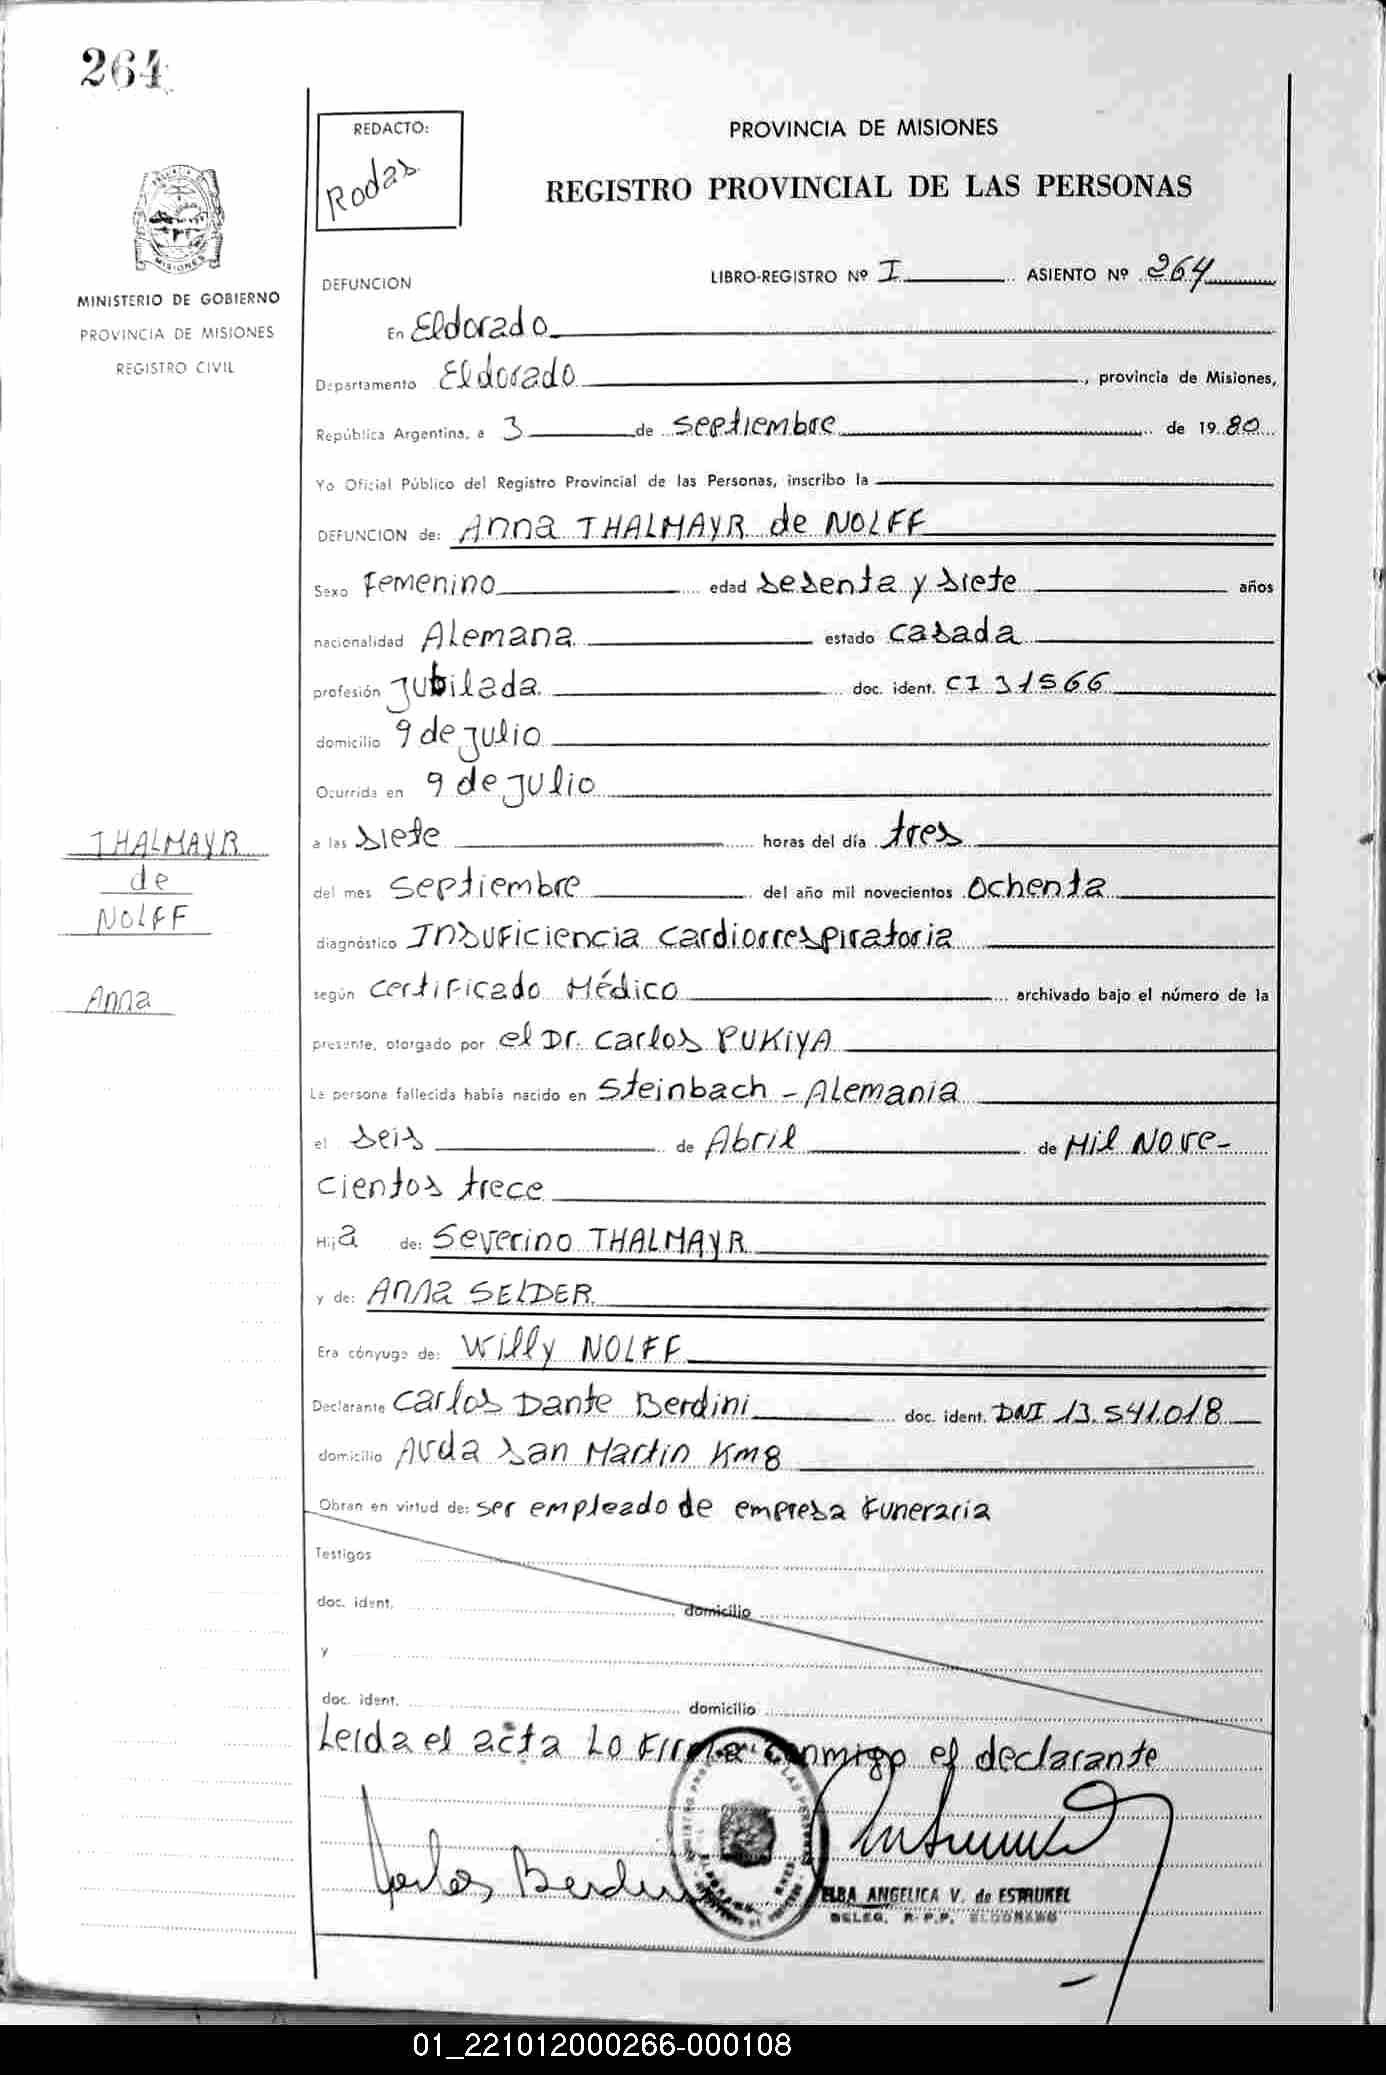 264
REDACTO:
Rodas
PROVINCIA DE MISIONES
REGISTRO PROVINCIAL DE LAS PERSONAS
MISIONES
MINISTERIO DE GOBIERNO
PROVINCIA DE MISIONES
REGISTRO CIVIL
DEFUNCION
LIBRO-REGISTRO Nº I ASIENTO Nº 264
En Eldorado
Departamento Eldorado, provincia de Misiones,
República Argentina, a 3 de septiembre de 1980
Yo Oficial Público del Registro Provincial de las Personas, inscribo la
DEFUNCION de: Anna THALMAYR de NOLFF
Sexo Femenino edad sesenta y siete años
nacionalidad Alemana estado casada
profesión jubilada doc. ident. CI 31566
domicilio 9 de julio
Ocurrida en 9 de julio
a las siete horas del día tres
del mes septiembre del año mil novecientos ochenta
diagnóstico Insuficiencia cardiorrespiratoria
según certificado Médico archivado bajo el número de la
presente, otorgado por el Dr. Carlos PUKIYA
La persona fallecida había nacido en Steinbach - Alemania
el seis de Abril de Mil Nove-
cientos trece
Hija de: Severino THALMAYR
y de: Anna SELDER
Era cónyuge de: Willy NOLFF
Declarante Carlos Dante Berdini doc. ident. DNI 13.541.018
domicilio Avda San Martin Km 8
Obran en virtud de: ser empleado de empresa funeraria
Testigos
doc. ident. domicilio
y
doc. ident. domicilio
Leida el acta lo firma conmigo el declarante
Carlos Berdini
ELBA ANGELICA V. de ESTRUKEL
DELEG. R.P.P. ELDORADO
THALMAYR
de
NOLFF
Anna
01_221012000266-000108